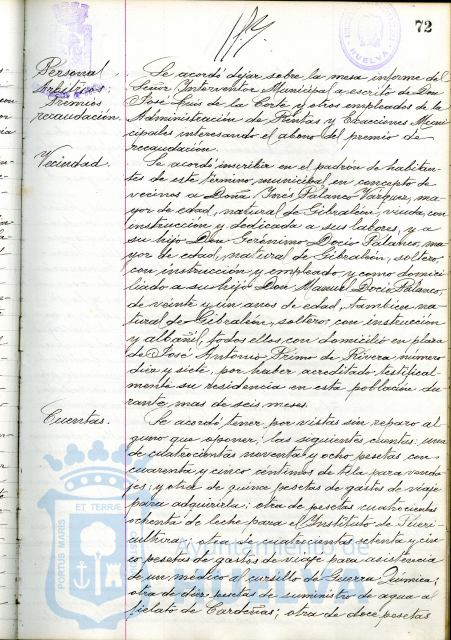 72
HUELVA
Personal
Arbitrios.
Premios
recaudación.
Se acordó dejar sobre la mesa informe del
Señor Interventor Municipal a escrito de Don
José Luis de la Corte y otros empleados de la
Administración de Rentas y Exacciones Muni
cipales interesando el abono del premio de
recaudación.
Vecindad.
Se acordó inscribir en el padrón de habitan-
tes de este término municipal en concepto de
vecinos a Doña Inés Palanco Vázquez, ma-
yor de edad, natural de Gibraleón, viuda, con
instrucción y dedicada a sus labores, y a
su hijo Don Gerónimo Docio Palanco, ma
yor de edad, natural de Gibraleón, soltero,
con instrucción y empleado y como domici
liado a su hijo Don Manuel Docio Palanco,
de veinte y un años de edad, tambien na-
tural de Gibraleón, soltero, con instrucción
y albañil, todos ellos con domicilio en plaza
de José Antonio Primo de Rivera número
diez y siete, por haber acreditado testifical-
mente su residencia en esta población du
rante mas de seis meses.
Cuentas.
Se acordó tener por vistas sin reparo al
guno que oponer, las siguientes cuentas: una
de cuatrocientas noventa y ocho pesetas con
cuarenta y cinco céntimos de tela para venda
jes; y otra de quince pesetas de gastos de viaje
para adquirirla; otra de pesetas cuatrocientas
ochenta de leche para el Instituto de Pueri-
cultura; otra de cuatrocientas setenta y cin-
co pesetas de gastos de viaje para asistencia
de un médico al cursillo de Guerra Química;
otra de diez pesetas de suministro de agua al
fielato de Cardeñas; otra de doce pesetas
PORTUS MARIS ET TERRAE
Ayuntamiento de